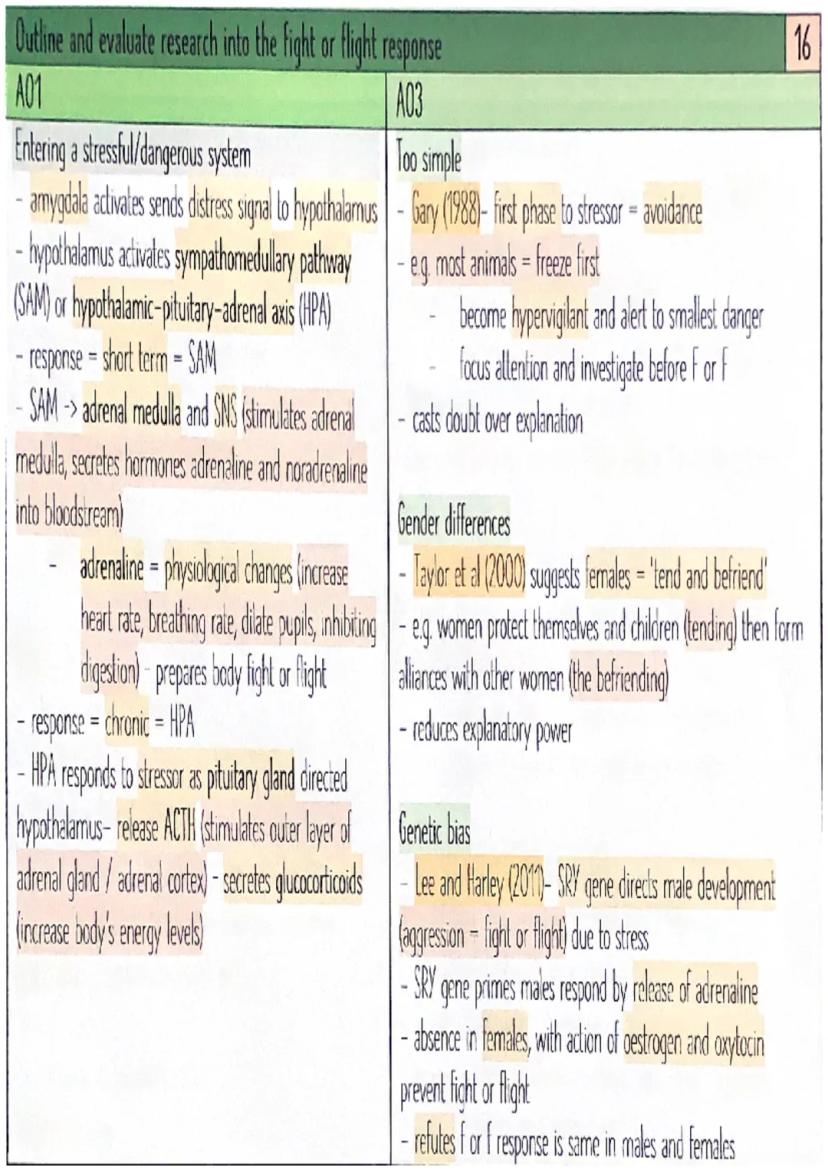 Outline and evaluate research into the fight or flight response
16
A01
Entering a stressful/dangerous system
- amygdala activates sends distress signal to hypothalamus
- hypothalamus activates sympathomedullary pathway
(SAM) or hypothalamic-pituitary-adrenal axis (HPA)
- response = short term = SAM
- SAM -> adrenal medulla and SNS (stimulates adrenal
medulla, secretes hormones adrenaline and noradrenaline
into bloodstream)
- adrenaline = physiological changes (increase
heart rate, breathing rate, dilate pupils, inhibiting
digestion) - prepares body fight or flight
- response = chronic = HPA
- HPA responds to stressor as pituitary gland directed
hypothalamus- release ACTH (stimulates outer layer of
adrenal gland / adrenal cortex) - secretes glucocorticoids
(increase body's energy levels)
A03
Too simple
- Gary (1988)- first phase to stressor = avoidance
- e.g. most animals = freeze first
- become hypervigilant and alert to smallest danger
- focus attention and investigate before F or F
- casts doubt over explanation
Gender differences
- Taylor et al (2000) suggests females = 'tend and befriend'
- e.g. women protect themselves and children (tending) then form
alliances with other women (the befriending)
- reduces explanatory power
Genetic bias
- Lee and Harley (2011)- SRY gene directs male development
(aggression = fight or flight) due to stress
- SRY gene primes males respond by release of adrenaline
- absence in females, with action of oestrogen and oxytocin
prevent fight or flight
- refutes f or f response is same in males and females